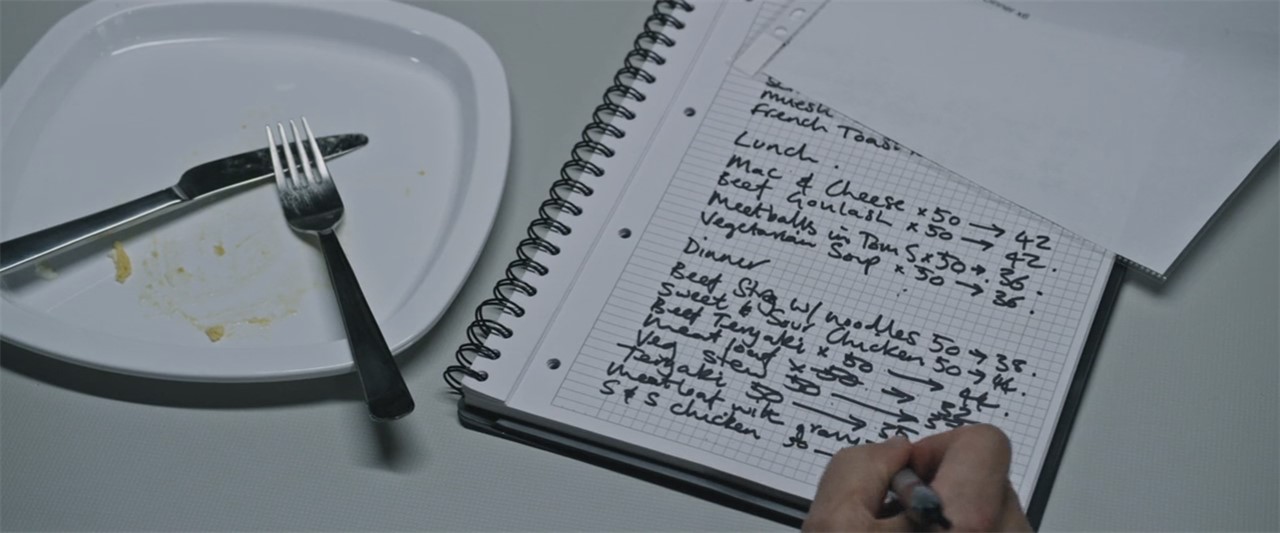 Dinner x6
muesli
French Toast
Lunch.
Mac & Cheese x 50 → 42
Beef Goulash x 50 → 42.
Meetballs in Tom S x 50 → 36.
Vegetarian Soup x 50 → 36.
Dinner
Beef Strog w/ noodles 50 → 38.
Sweet & Sour Chicken 50 → 44.
Beef Teryaki x 50 → 44.
meat loaf x 50 →
Veg stew 50 →
Teryaki 50 →
meatloaf with gravy
S & S chicken 50